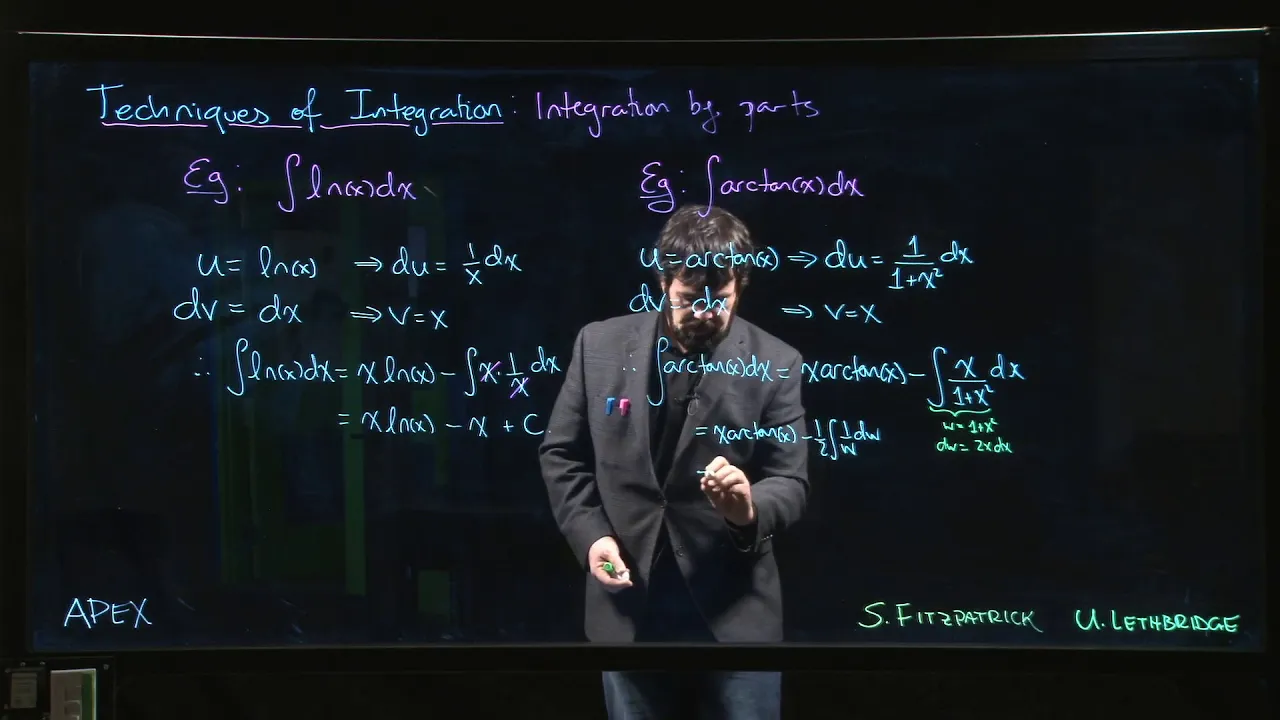 Techniques of Integration: Integration by parts
Eg: ∫ln(x)dx
u = ln(x) ⇒ du = 1/x dx
dv = dx ⇒ v = x
∴ ∫ln(x)dx = x ln(x) - ∫x · 1/x dx
= x ln(x) - x + C.
Eg: ∫arctan(x)dx
u = arctan(x) ⇒ du = 1/(1+x²) dx
dv = dx ⇒ v = x
∴ ∫arctan(x)dx = x arctan(x) - ∫ x/(1+x²) dx
w = 1+x²
dw = 2x dx
= x arctan(x) - 1/2 ∫ 1/w dw
APEX
S. FITZPATRICK U. LETHBRIDGE